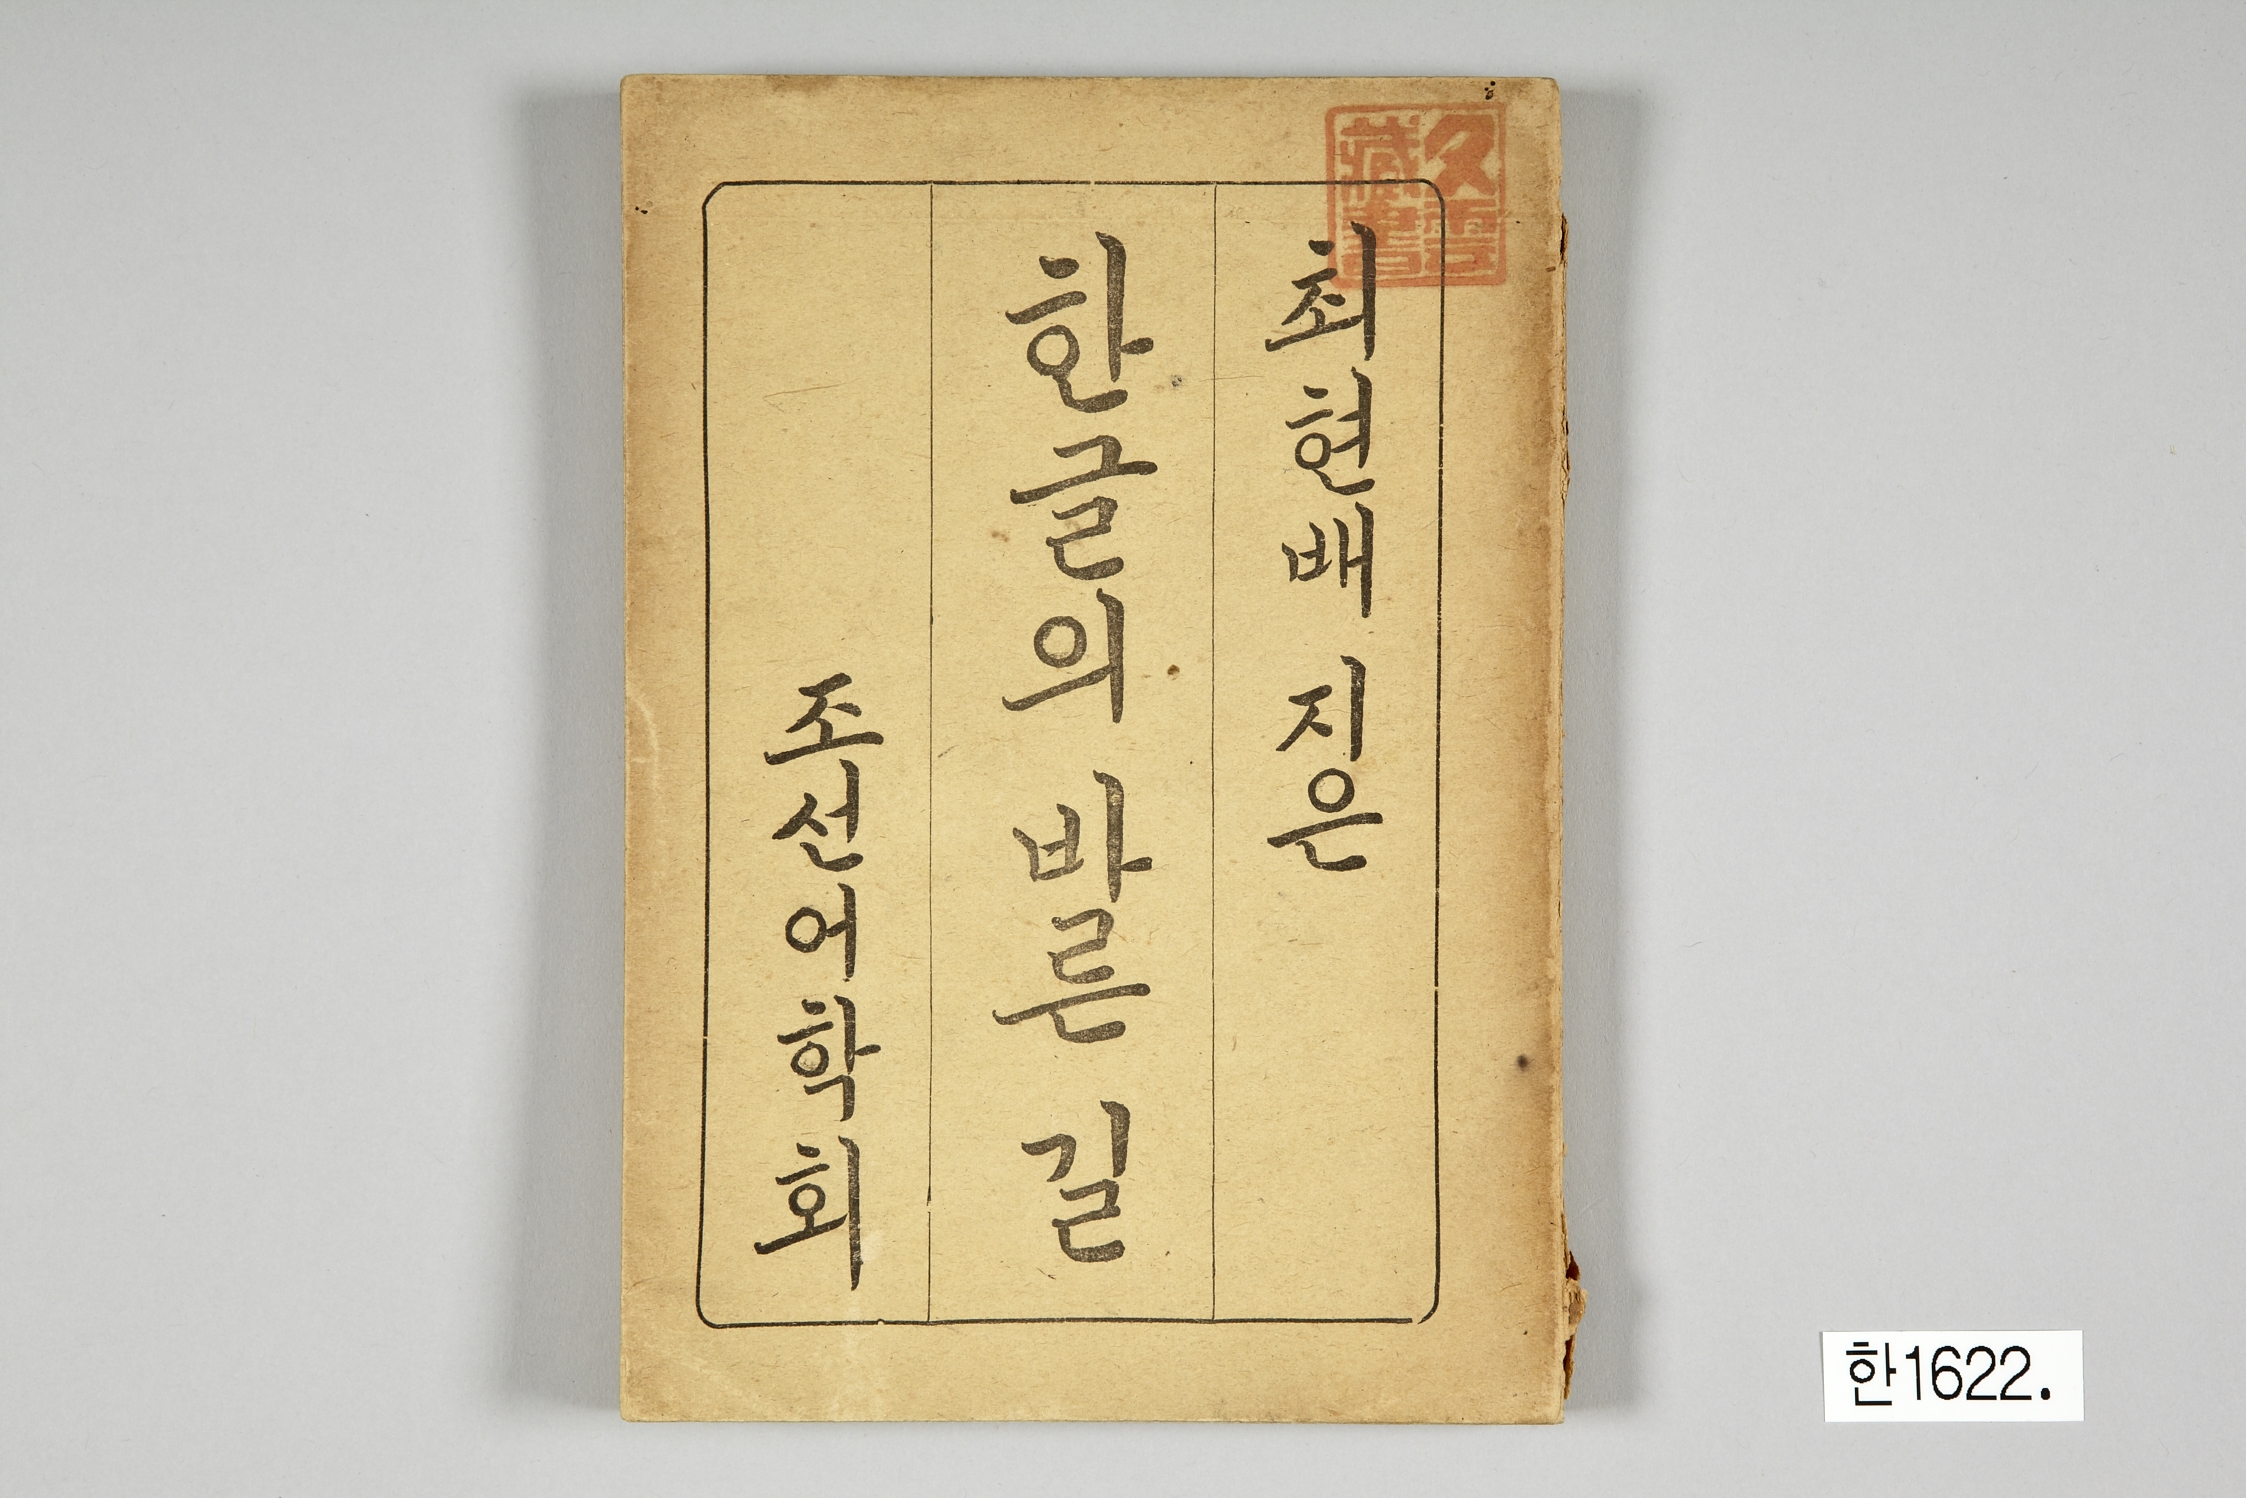 최현배 지은
한글의 바른 길
조선어학회
藏書
한1622.